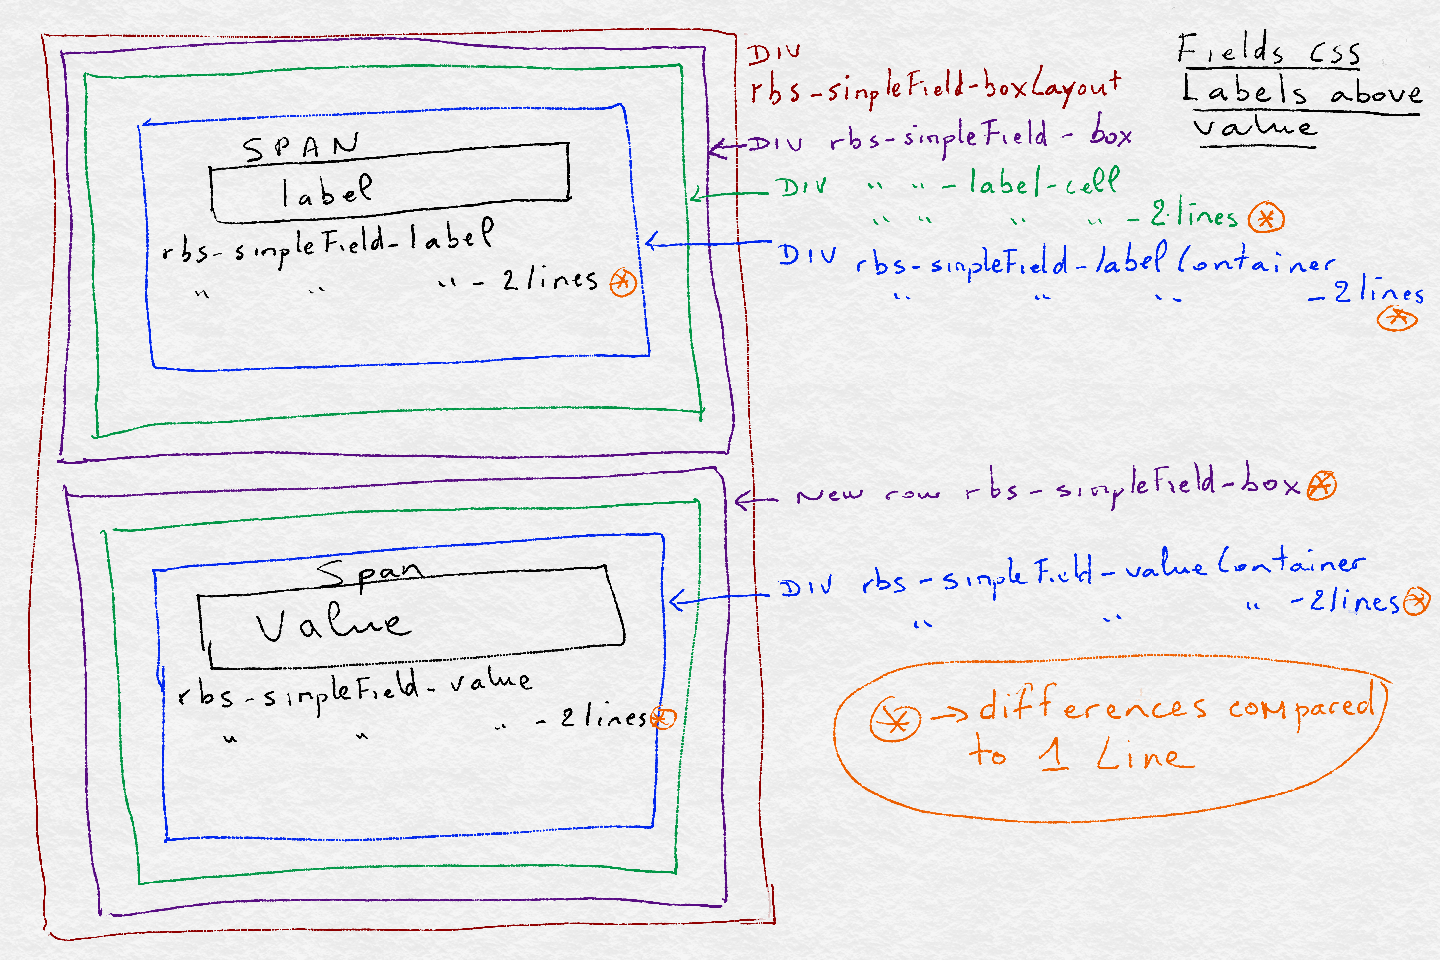 Fields css
Labels above
value
DIV
rbs-simpleField-boxLayout
DIV rbs-simpleField-box
DIV " " -label-cell
" " " " -2lines *
DIV rbs-simpleField-labelContainer
" " " -2lines
*
SPAN
label
rbs-simpleField-label
" " " -2lines *
New row rbs-simpleField-box *
DIV rbs-simpleField-valueContainer
" " " -2lines *
Span
Value
rbs-simpleField-value
" " " -2lines *
* → differences compared
to 1 Line